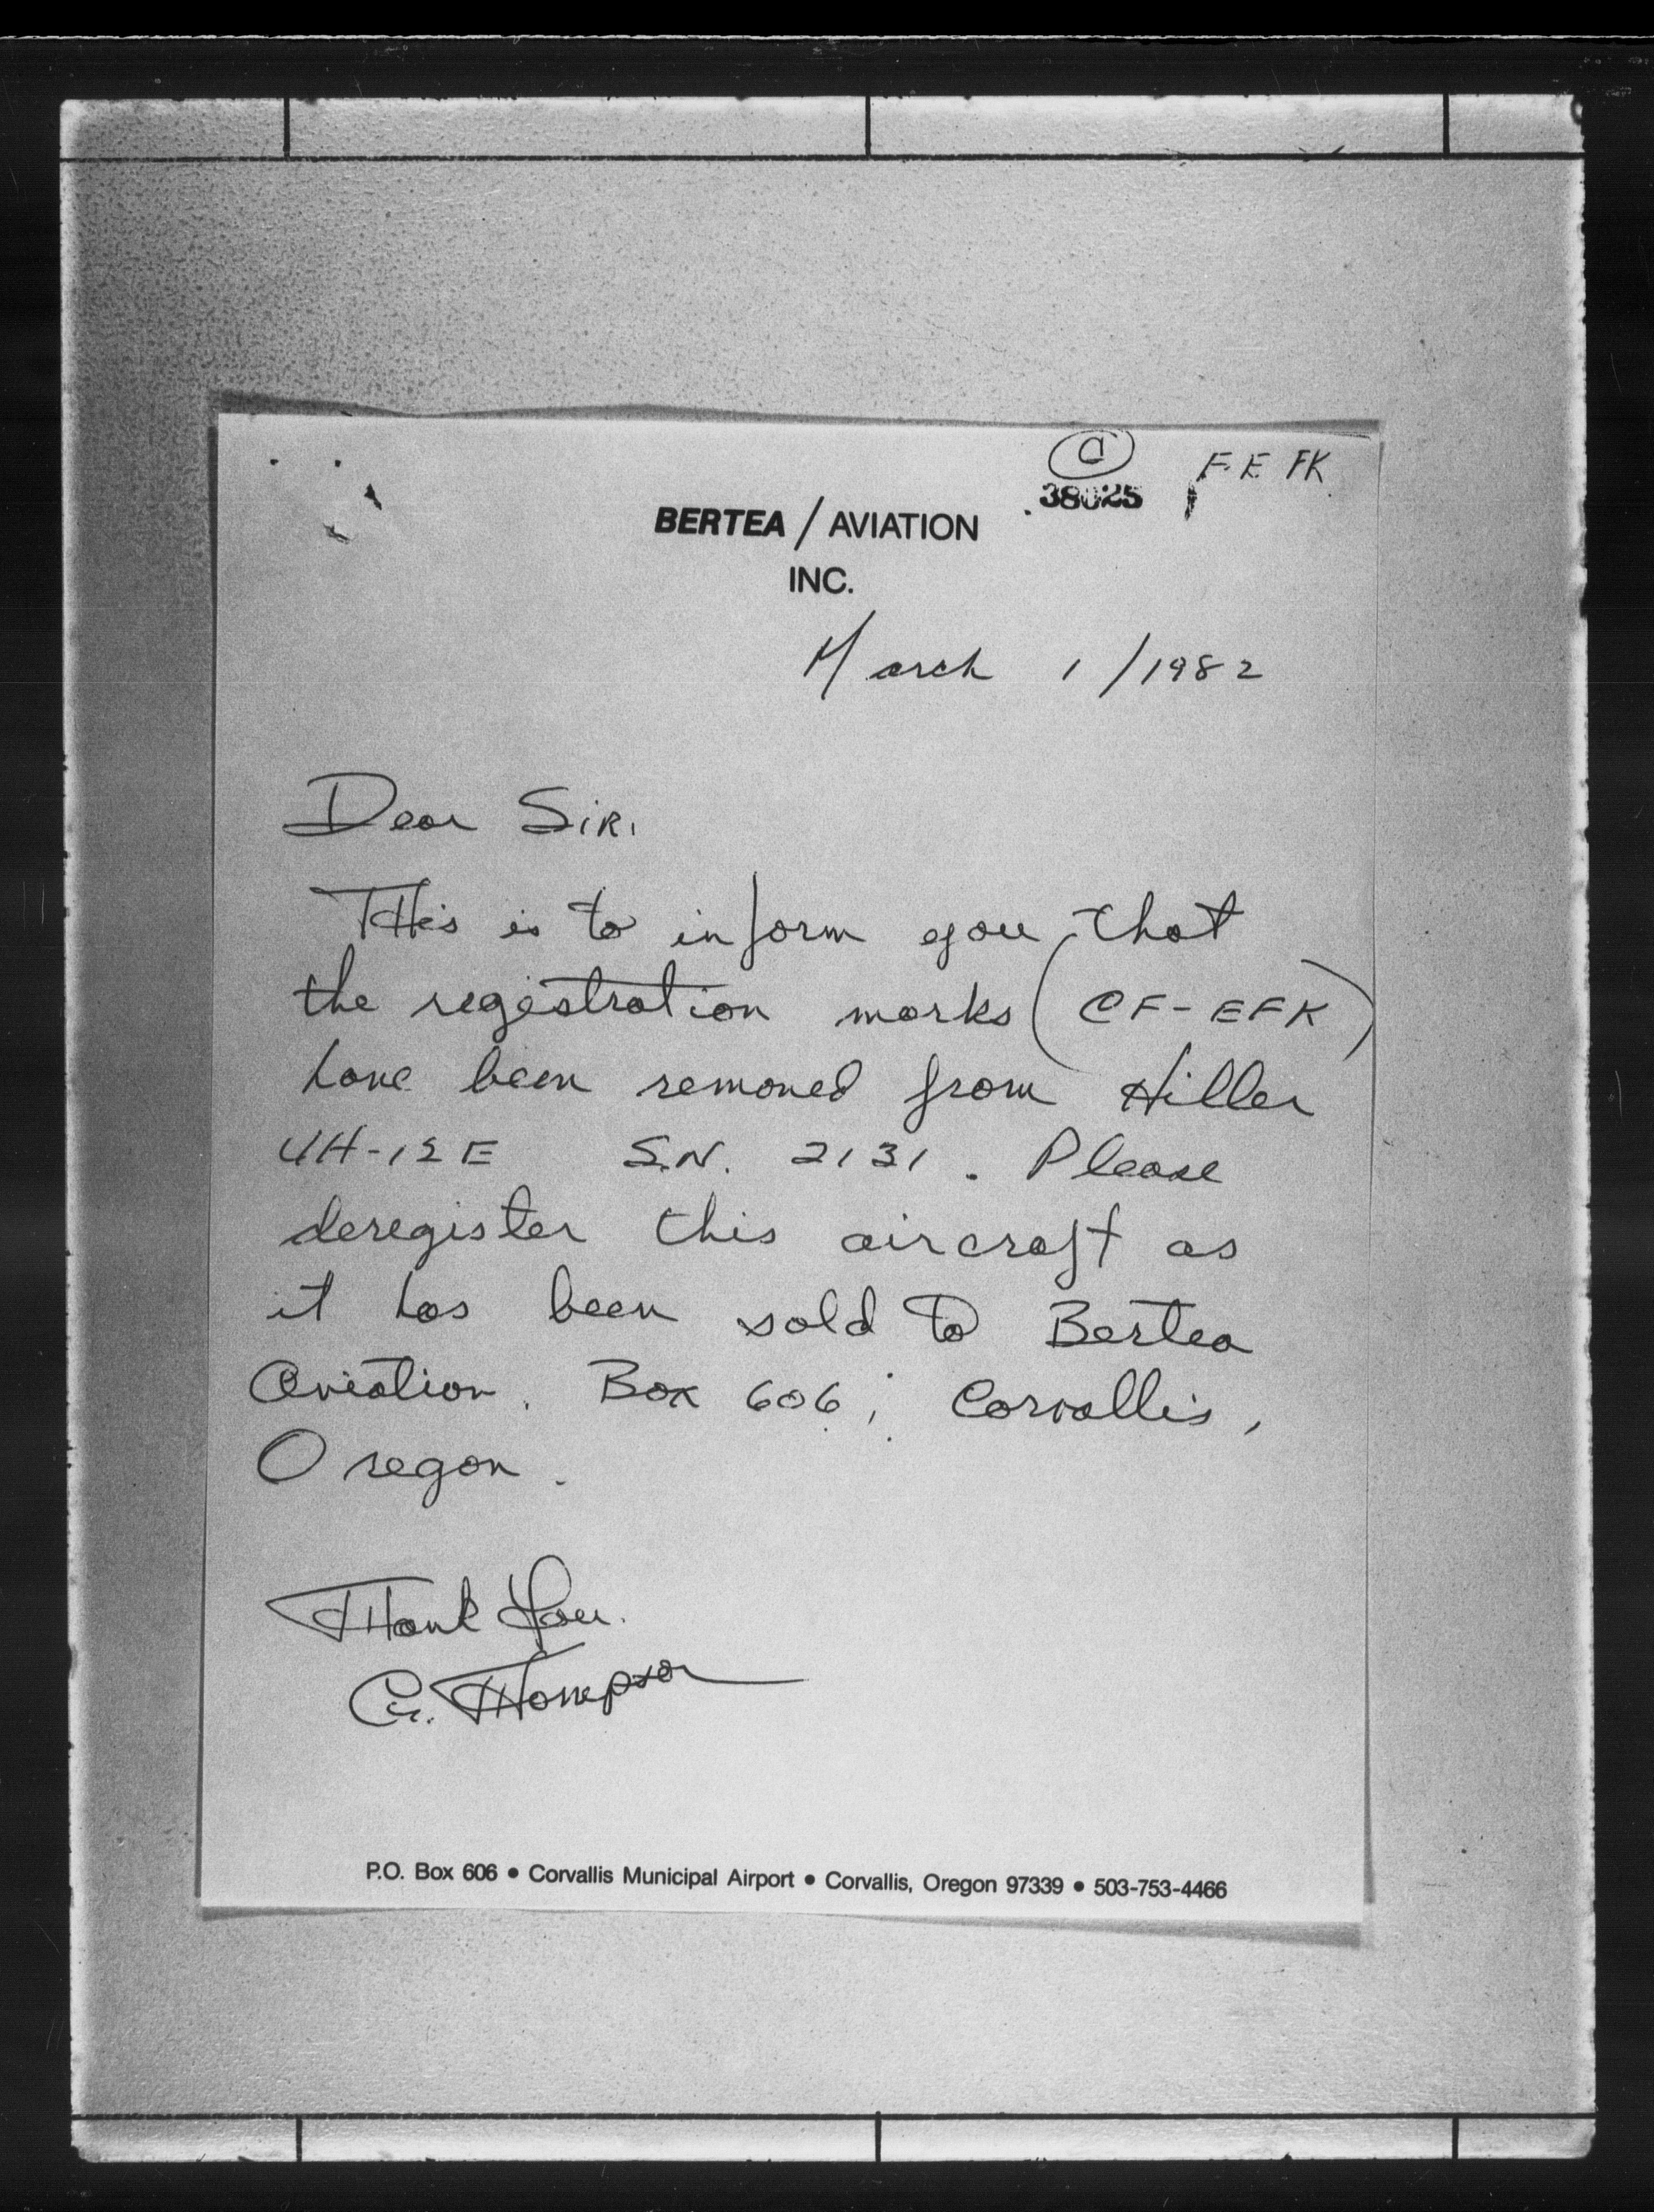 C
38025
F E FK
BERTEA / AVIATION
INC.
March 1/1982
Dear Sir.
This is to inform you that
the registration marks (CF-EFK)
have been removed from Hiller
UH-12E S.N. 2131. Please
deregister this aircraft as
it has been sold to Bertea
Aviation. Box 606; Corvallis,
Oregon.
Thank You.
G. Thompson
P.O. Box 606 • Corvallis Municipal Airport • Corvallis, Oregon 97339 • 503-753-4466